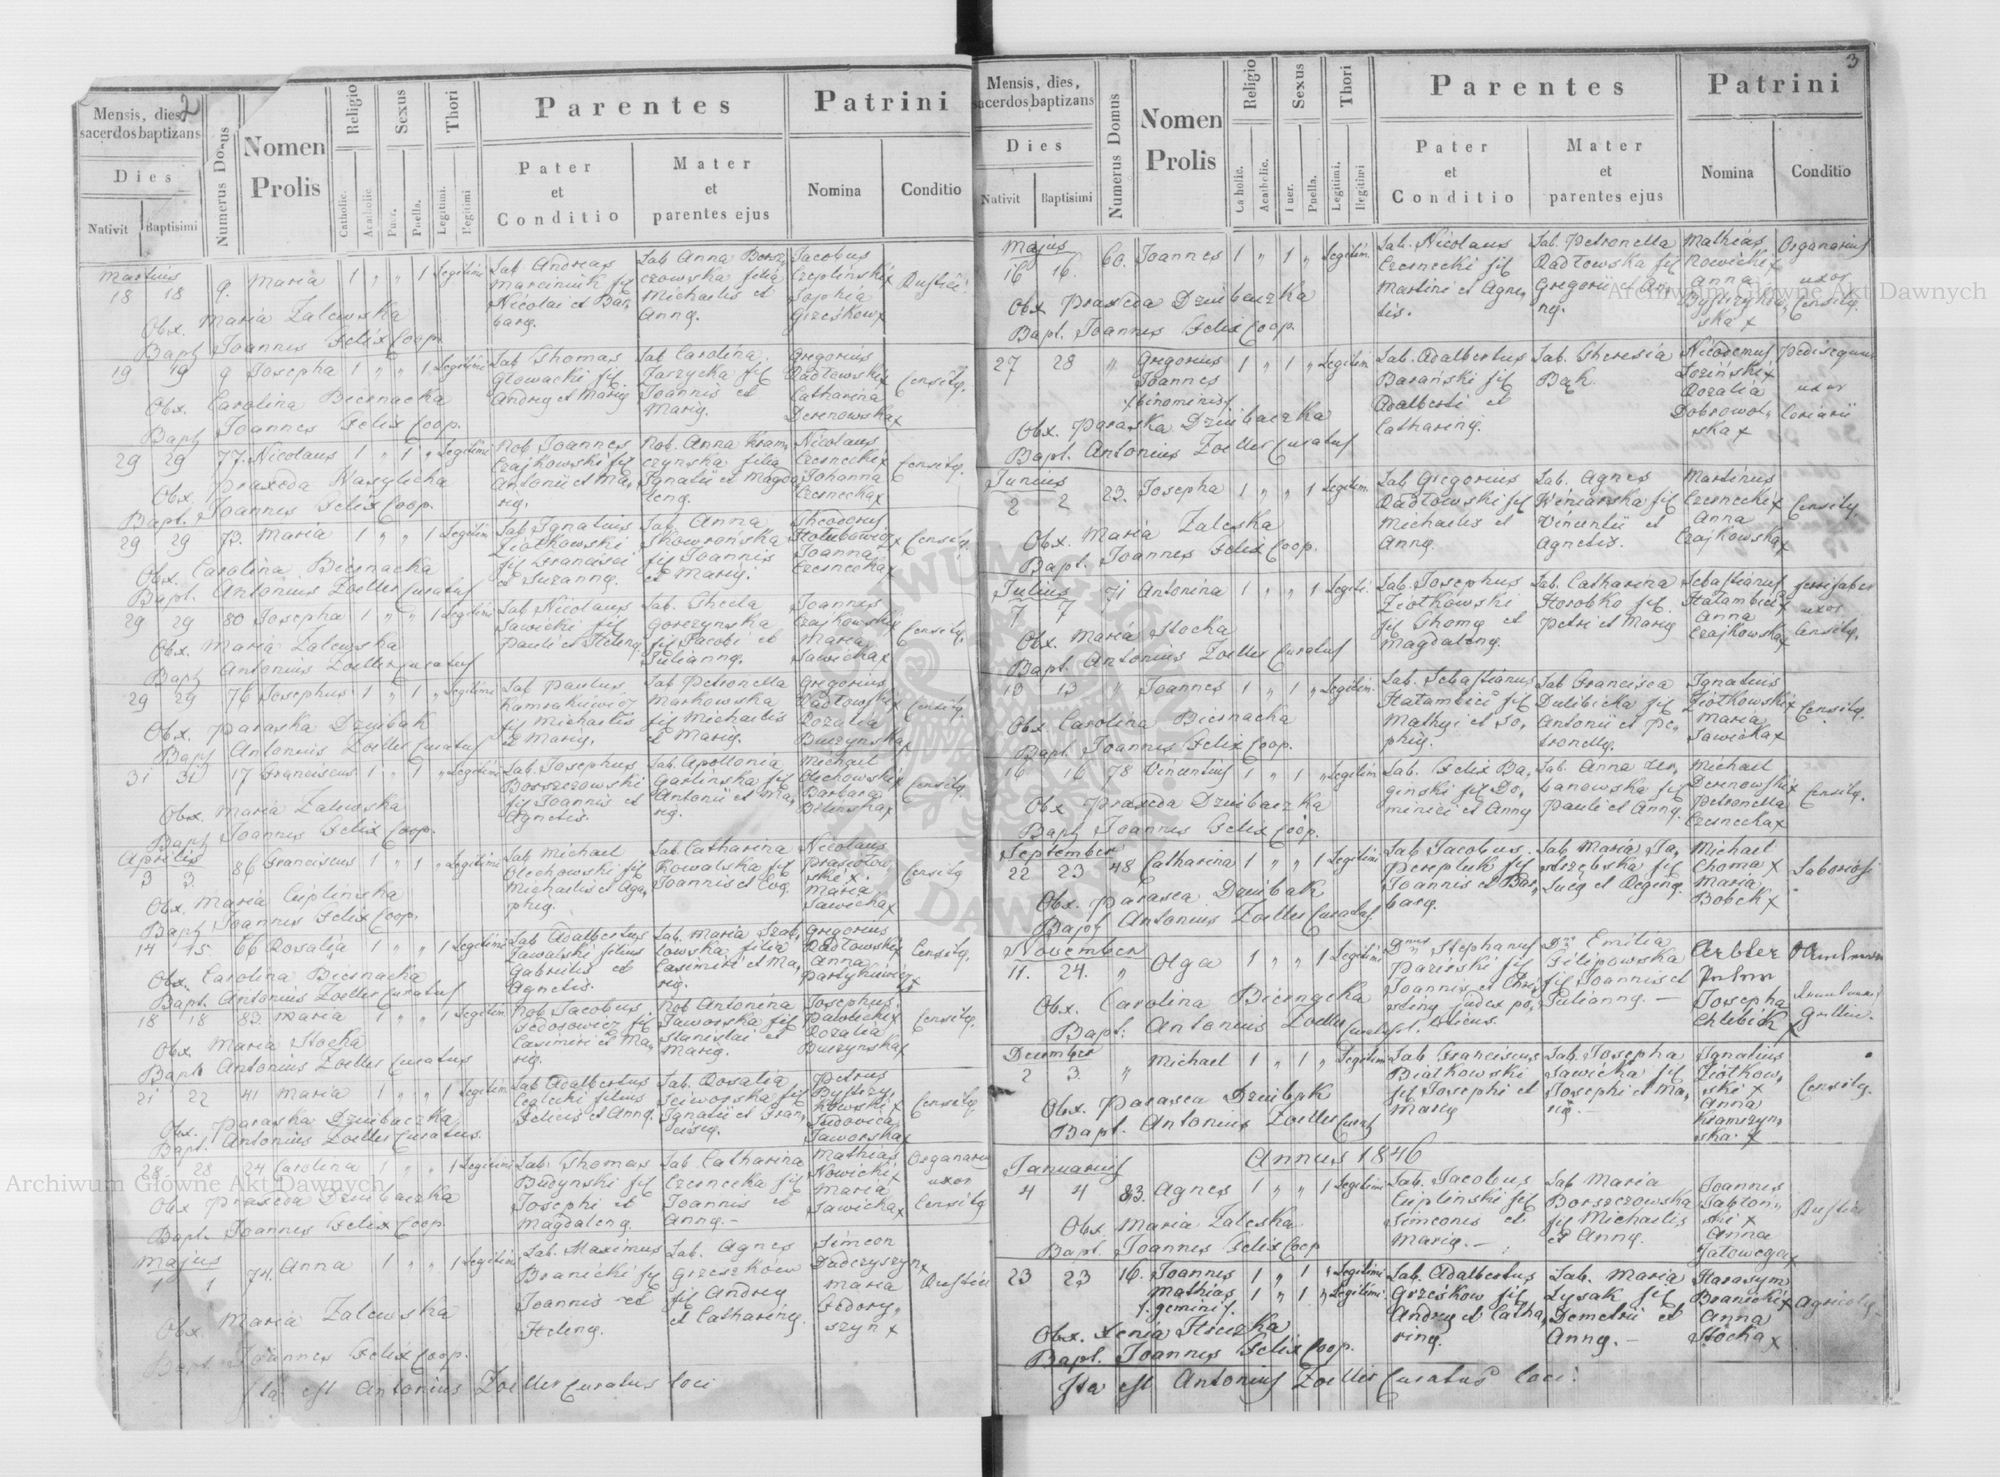 2
Mensis, dies,
sacerdos baptizans
Dies
Nativit Baptisimi
Numerus Domus
Nomen
Prolis
Religio
Catholic. Acatholic
Sexus
Puer. Puella.
Thori
Legitimi. Illegitimi
Parentes
Pater
et
Conditio
Mater
et
parentes ejus
Patrini
Nomina Conditio
Martius
18 18 9. Maria 1 " " 1 Legitimi
Lab Andreas
Marciniuk fil
Nicolai et Bar,
barę.
Lab Anna Borsz,
czowska filia
Michaelis et
Annę.
Jacobus
Czeplinski x
Sophia
Grześkow x
Rustici
Obx. Maria Zalewska
Bapt Joannes Felix Coop.
19 19 9 Josepha 1 " " 1 Legitimi
Lab Thomas
Głowacki fil
Andreę et Marię
Lab Carolina
Jarzycka fil
Joannis et
Marię.
Gregorius
Radłowski x
Catharina
Derenowska x
Censitę.
Obx. Carolina Biernacka
Bapt Joannes Felix Coop.
29 29 77. Nicolaus 1 " 1 " Legitimi
Nob. Joannes
Czajkowski fil
Antonii et Ma,
rię.
Nob. Anna Kram,
czynska filia
Ignatii et Magda
lenę.
Nicolaus
Czernecki x
Johanna
Czernecka x
Censitę.
Obx. Praxeda Wasylicha
Bapt. Joannes Felix Coop.
29 29 73. Maria 1 " " 1 Legitimi
Lab Ignatius
Ziółkowski
fil Francisci
et Suzannę.
Lab. Anna
Skowrońska
fil Joannis
et Marię.
Theodorus
Hołubowicz x
Joanna
Czernecka x
Censitę.
Obx. Carolina Biernacka
Bapt. Antonius Zoeller Curatus
29 29 80 Josepha 1 " " 1 Legitimi
Lab Nicolaus
Sawicki fil
Pauli et Helenę.
Lab. Thecla
Gorczynska
fil Jacobi et
Juliannę.
Joannes
Czajkowski x
Maria
Sawicka x
Censitę.
Obx. Maria Zalewska
Bapt Antonius Zoeller Curatus
29 29 76 Josephus 1 " 1 " Legitimi
Lab Paulus
fil Michaelis
et Marię.
Lab Petronella
Markowska
fil Michaelis
et Marię.
Gregorius
Radłowski x
Rozalia
Buczynska x
Censitę.
Obx. Paraska Dziubak
Bapt Antonius Zoeller Curatus
31 31 17 Franciscus 1 " 1 " Legitimi
Lab. Josephus
Borszczowski
fil Joannis et
Agnetis.
Lab. Apollonia
Garlinska fil
Antonii et Ma,
rię.
Michael
Olechowski x
Barbara
Bilinska x
Censitę.
Obx. Maria Zalewska
Bapt Joannes Felix Coop.
Aprilis
3 3. 86 Franciscus 1 " 1 " Legitimi
Lab. Michael
Olechowski fil
Michaelis et Aga,
phię.
Lab Catharina
Kowalska fil
Joannis et Evę.
Nicolaus
ski x.
Maria
Sawicka x
Censitę
Obx. Maria Cuplinska
Bapt Joannes Felix Coop.
14 15. 66 Rosalia 1 " " 1 Legitimi
Lab Adalbertus
Zawalski filius
Gabrielis et
Agnetis.
Lab. Maria Szab,
lowska filia
Casimiri et Ma,
rię.
Gregorius
Radłowski x
Anna
Censitę.
Obx. Carolina Biernacka
Bapt. Antonius Zoeller Curatus
18 18 83. Maria 1 " " 1 Legitimi
Nob. Jacobus
Fedosowicz fil
Casimiri et Ma,
rię.
Nob Antonina
Jaworska fil
Stanislai et
Marię.
Josephus
Pawlicki x
Rozalia
Buczynska x
Censitę.
Obx Maria Stocka
Bapt Antonius Zoeller Curatus
21 22 41 Maria 1 " " 1 Legitimi
Lab Adalbertus
Cegłecki filius
Felicis et Annę.
Lab. Rosalia
Sciworska fil
Ignatii et Fran,
ciscę.
Petrus
Bystrzy,
kowski x
Ludovica
Jaworska x
Censitę
Obx. Paraska Dziubaczka
Bapt. Antonius Zoeller Curatus.
28 28 24 Carolina 1 " " 1 Legitimi
Lab. Thomas
Budynski fil
Josephi et
Magdalenę.
Lab. Catharina
Czernecka fil
Joannis et
Annę.-
Mathias
Nowicki x
Maria
Sawicka x
Organarius
uxor
Censitę
Obx Praxeda Dziubaczka
Bapt. Joannes Felix Coop
Majus
1 1 74. Anna 1 " " 1 Legitimi
Lab. Maximus
Branicki fil
Joannis et
Helenę.
Lab. Agnes
Grzeszkow
fil Andreę
et Catharinę.
Simeon
Dudczyszyn x
Maria
Fedory,
szyn x
Rustici
Obx. Maria Zalewska
Bapt. Joannes Felix Coop.
Ita est Antonius Zoeller Curatus loci
3
Mensis, dies,
sacerdos baptizans
Dies
Nativit Baptisimi
Numerus Domus
Nomen
Prolis
Religio
Catholic. Acatholic.
Sexus
Puer. Puella.
Thori
Legitimi. Illegitimi
Parentes
Pater
et
Conditio
Mater
et
parentes ejus
Patrini
Nomina Conditio
Majus
16 16. 60. Joannes 1 " 1 " Legitim.
Lab. Nicolaus
Czernecki fil
Martini et Agne,
tis.
Lab. Petronella
Radłowska fil
Gregorii et An,
nę.
Mathias
Nowicki x
Anna
ska x
Organarius
uxor
Censitę.
Obx Praxeda Dziubaczka
Bapt. Joannes Felix Coop.
27 28 " Gregorius
Joannes
(binominis)
1 " 1 " Legitim
Lab. Adalbertus
Barański fil
Adalberti et
Catharinę.
Lab. Theresia
Bąk
Nicodemus
Łoziński x
Rozalia
Dobrowol,
ska x
Pedisequus
uxor
Coriarii
Obx. Paraska Dziubaczka
Bapt. Antonius Zoeller Curatus
Junius
2 2 23. Josepha 1 " " 1 Legitim.
Lab Gregorius
Radłowski fil
Michaelis et
Annę.
Lab. Agnes
Weniarska fil
Vincentii et
Agnetis.
Martinus
Czernecki x
Anna
Czajkowska x
Censitę
Obx. Maria Zaleska
Bapt. Joannes Felix Coop.
Julius
7 7 71 Antonina 1 " " 1 Legiti.
Lab. Josephus
Ziółkowski
fil Thomę et
Magdalenę.
Lab. Catharina
Horobko fil
Petri et Marię
Sebastianus
Anna
Czajkowska x
ferrifaber
uxor
Censitę.
Obx. Maria Stocka
Bapt. Antonius Zoeller Curatus
13 13 " Joannes 1 " 1 " Legitim.
Lab. Sebastianus
Mathęi et So,
phię.
Lab Francisca
Dulibicka fil
Antonii et Pe,
tronellę.
Ignatius
Ziółkowski x
Maria
Sawicka x
Censitę.
Obx Carolina Biernacka
Bapt. Joannes Felix Coop.
16 16 78 Vincentius 1 " 1 " Legitim
Lab. Felix Ba,
ginski fil Do,
minici et Annę
Lab. Anna Ur,
banowska fil
Pauli et Annę.
Michael
Derenowski x
Petronella
Czernecka x
Censitę.
Obx Praxeda Dziubaczka
Bapt Joannes Felix Coop.
September
22 23 48 Catharina 1 " " 1 Legitimi
Lab Jacobus
Pereptuk fil
Joannis et Bar,
barę.
Lab Maria Ja,
strzebska fil
Lucę et Reginę.
Michael
Choma x
Maria
Bobek x
Laboriosi
Obx. Parasca Dziubak
Bapt Antonius Zoeller Curatus
November
11. 24. " Olga 1 " " 1 Legitimi
Dnus Stephanus
Parienski fil
Joannis et Chri,
stinę judex po,
liticus.
Dna Emilia
Filipowska
fil Joannis et
Juliannę.-
Arbter
Josepha
Chlebik x
Obx. Carolina Biernacka
Bapt: Antonius Zoeller Curatus
December
2 3. " Michael 1 " 1 " Legitim
Lab Franciscus
Białkowski
fil Josephi et
Marię
Lab. Josepha
Sawicka fil
Josephi et Ma,
rię.-
Ignatius
Ziółkow,
ski x
Anna
Kramczyn,
ska x
Censitę.
Obx. Parasca Dziubak
Bapt. Antonius Zoeller Curat
Annus 1846
Januarius
4 4 83. Agnes 1 " " 1 Legitimi
Lab. Jacobus
Cuplinski fil
Simeonis et
Marię.-
Lab Maria
Borszczowska
fil Michaelis
et Annę.
Joannes
Jabłon,
ski x
Anna
Jałowega x
Rustici
Obx Maria Zaleska
Bapt. Joannes Felix Coop
23 23 16. Joannes 1 " 1 " Legitimi
Mathias 1 " 1 " Legitimi
(gemini).
Lab. Adalbertus
Grześkow fil
Andreę et Catha,
rinę.
Lab. Maria
Łysak fil
Demetrii et
Annę.-
Harasym
Branicki x
Anna
Stocha x
Agricolę
Obx. Xenia Hruzka
Bapt. Joannes Felix Coop.
Ita est Antonius Zoeller Curatus loci.
Archiwum Główne Akt Dawnych
Archiwum Główne Akt Dawnych